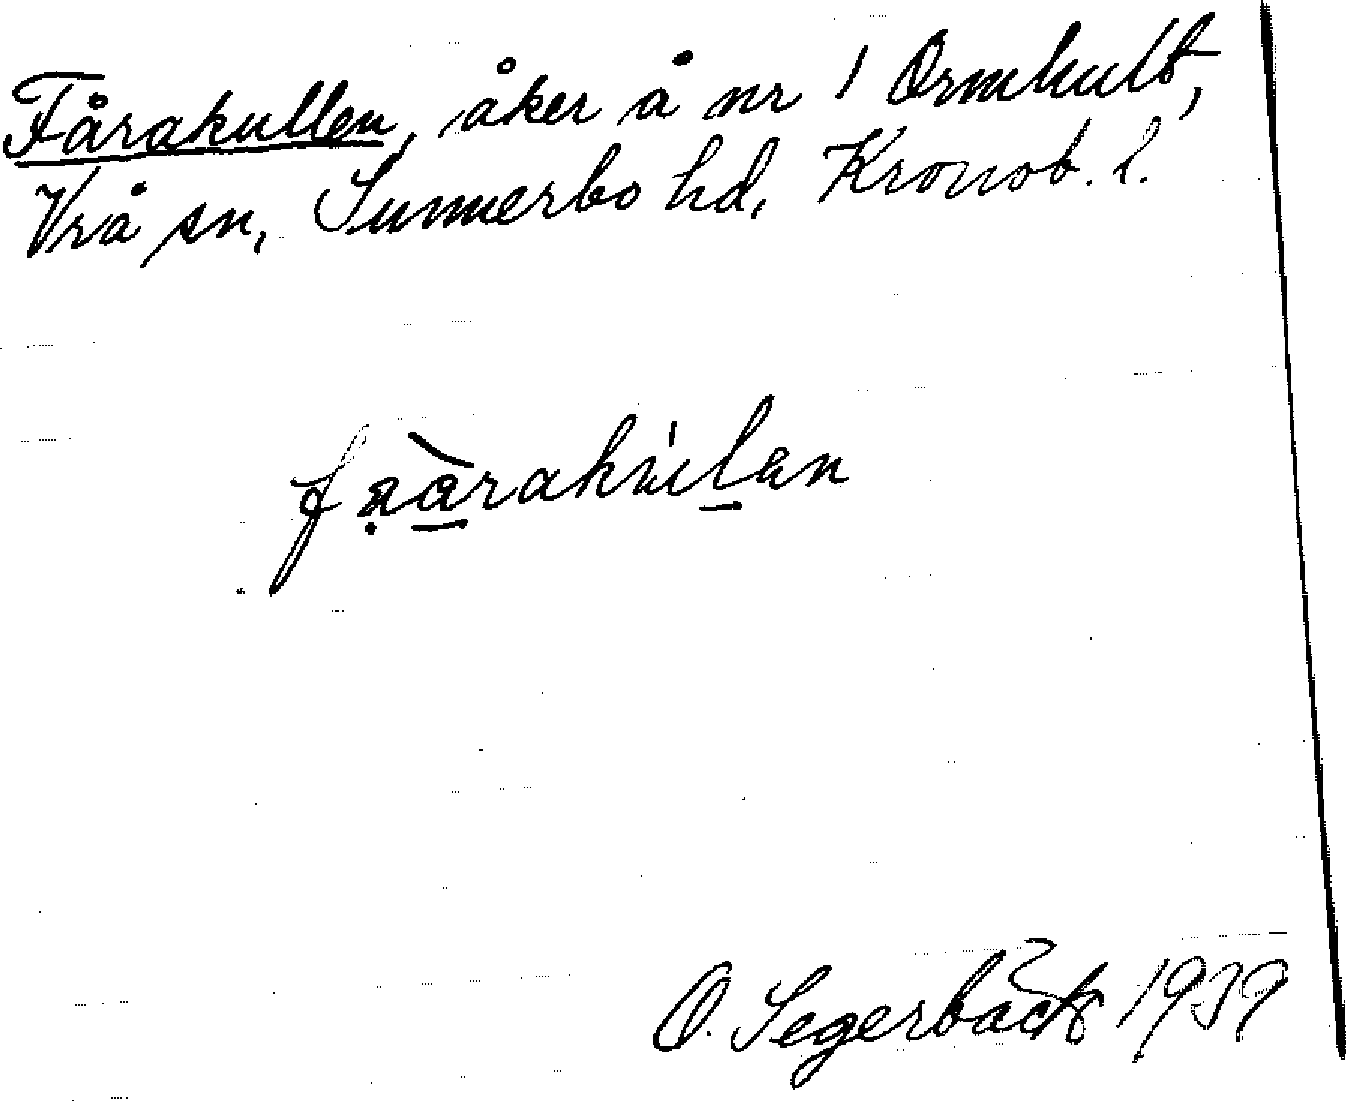 Fårakullen, åker å nr 1 Ormhult,
Vrå sn, Sunnerbo hd, Kronob. l.
O. Segerbäck 1939